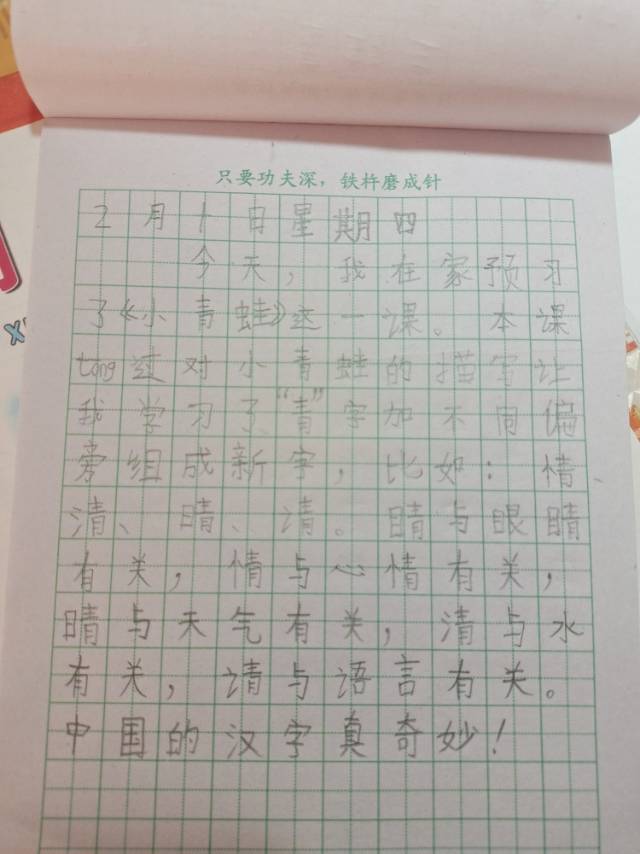 只要功夫深，铁杵磨成针
2月十日星期四
今天，我在家预习
了《小青蛙》这一课。本课
tong过对小青蛙的描写让
我学习了“青”字加不同偏
旁组成新字，比如：情、
清、晴、请。睛与眼睛
有关，情与心情有关，
晴与天气有关，清与水
有关，请与语言有关。
中国的汉字真奇妙！